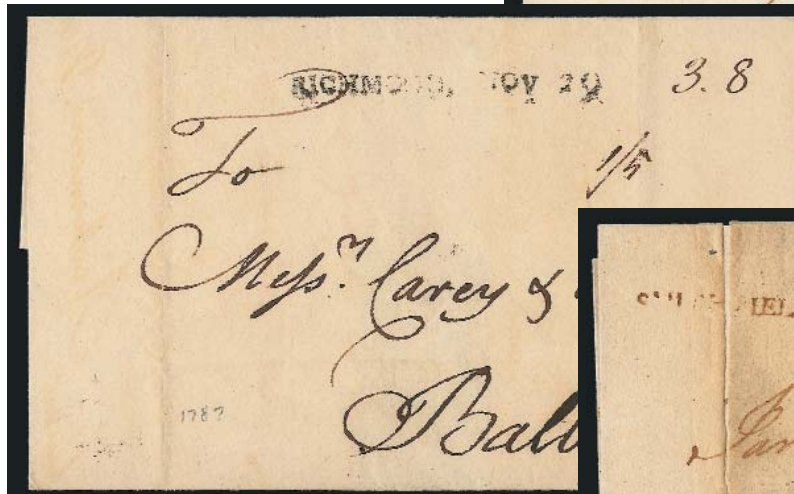 RICHMOND, NOV 29
3. 8
To
1/5
Messrs. Carey &
Balt
1787